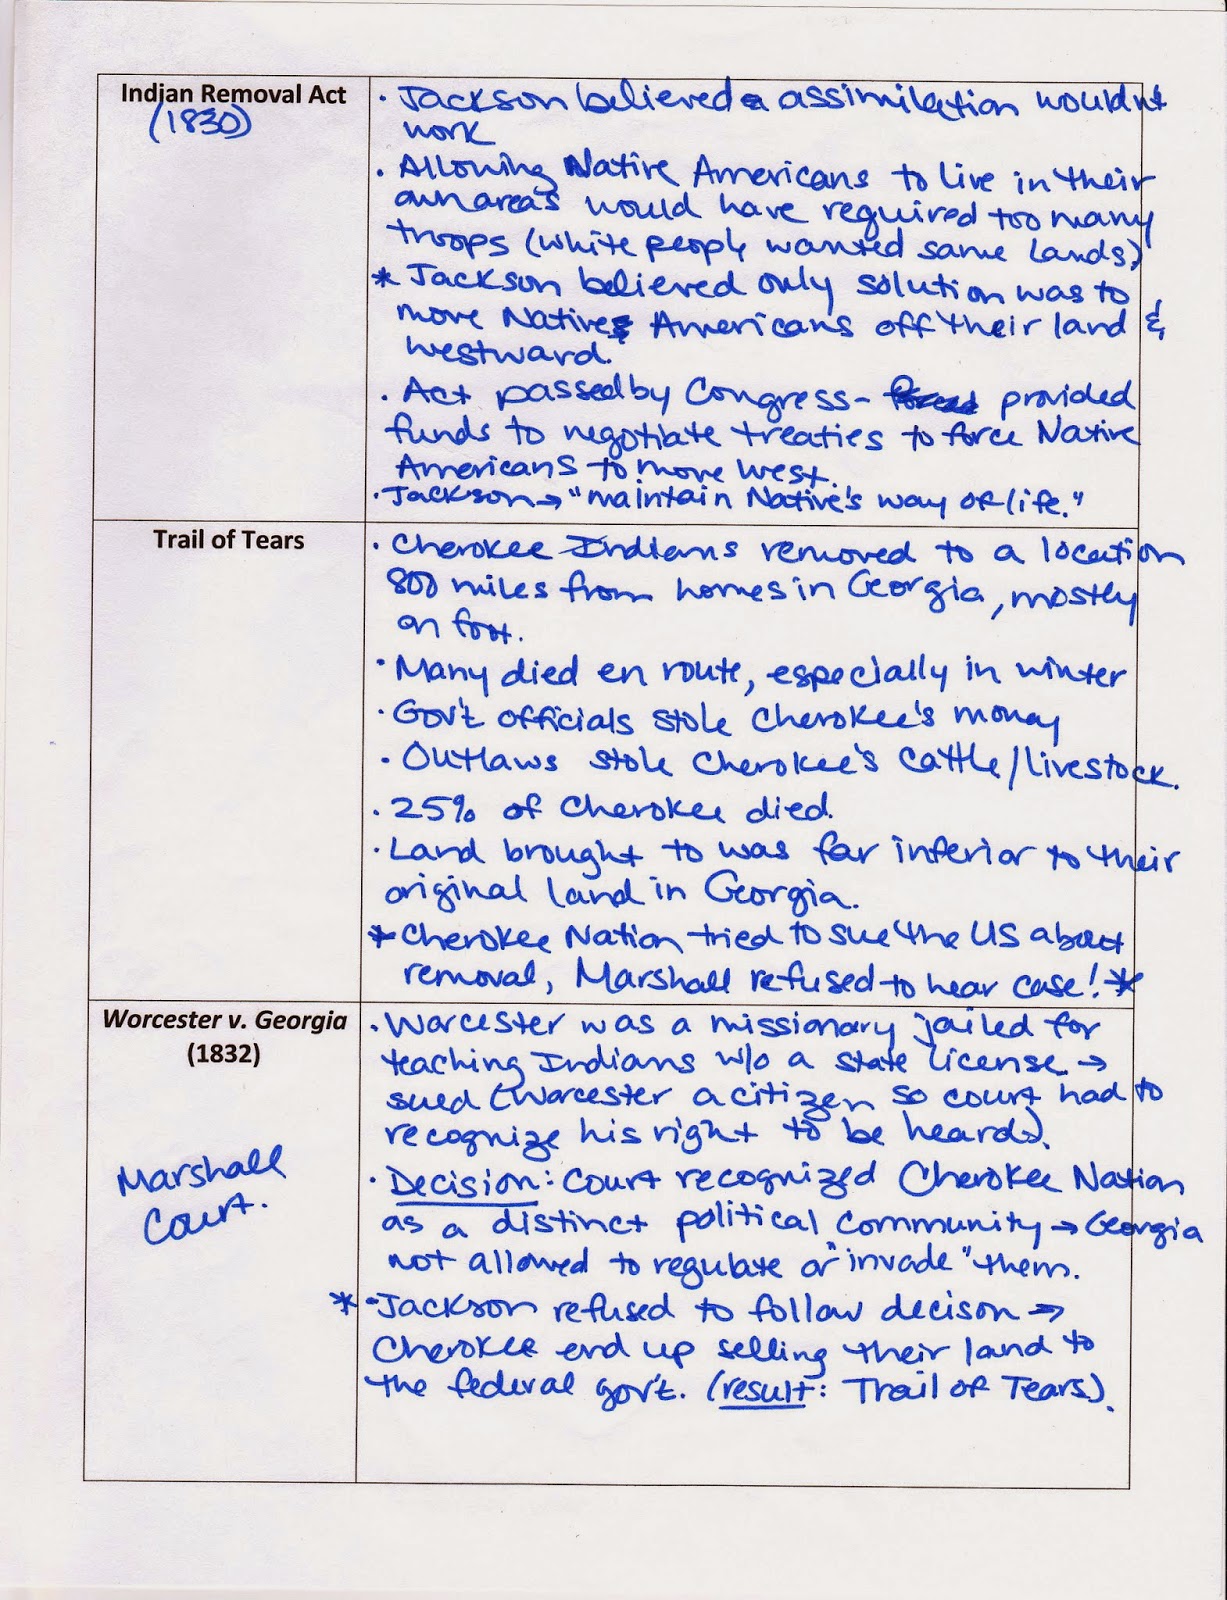 Indian Removal Act
(1830)
· Jackson believed assimilation wouldn't
work
· Allowing Native Americans to live in their
own areas would have required too many
troops (white people wanted same lands)
* Jackson believed only solution was to
move Native Americans off their land &
westward.
· Act passed by Congress - provided
funds to negotiate treaties to force Native
Americans to move west.
· Jackson → "maintain Native's way of life."
Trail of Tears
· Cherokee Indians removed to a location
800 miles from homes in Georgia, mostly
on foot.
· Many died en route, especially in winter
· Gov't officials stole Cherokee's money
· Outlaws stole Cherokee's cattle/livestock.
· 25% of Cherokee died.
· Land brought to was far inferior to their
original land in Georgia.
* Cherokee Nation tried to sue the US about
removal, Marshall refused to hear case! *
Worcester v. Georgia
(1832)
Marshall
Court.
· Worcester was a missionary jailed for
teaching Indians w/o a state license →
sued (Worcester a citizen so court had to
recognize his right to be heard).
· Decision: Court recognized Cherokee Nation
as a distinct political community → Georgia
not allowed to regulate or "invade" them.
* · Jackson refused to follow decison →
Cherokee end up selling their land to
the federal gov't. (result: Trail of Tears).